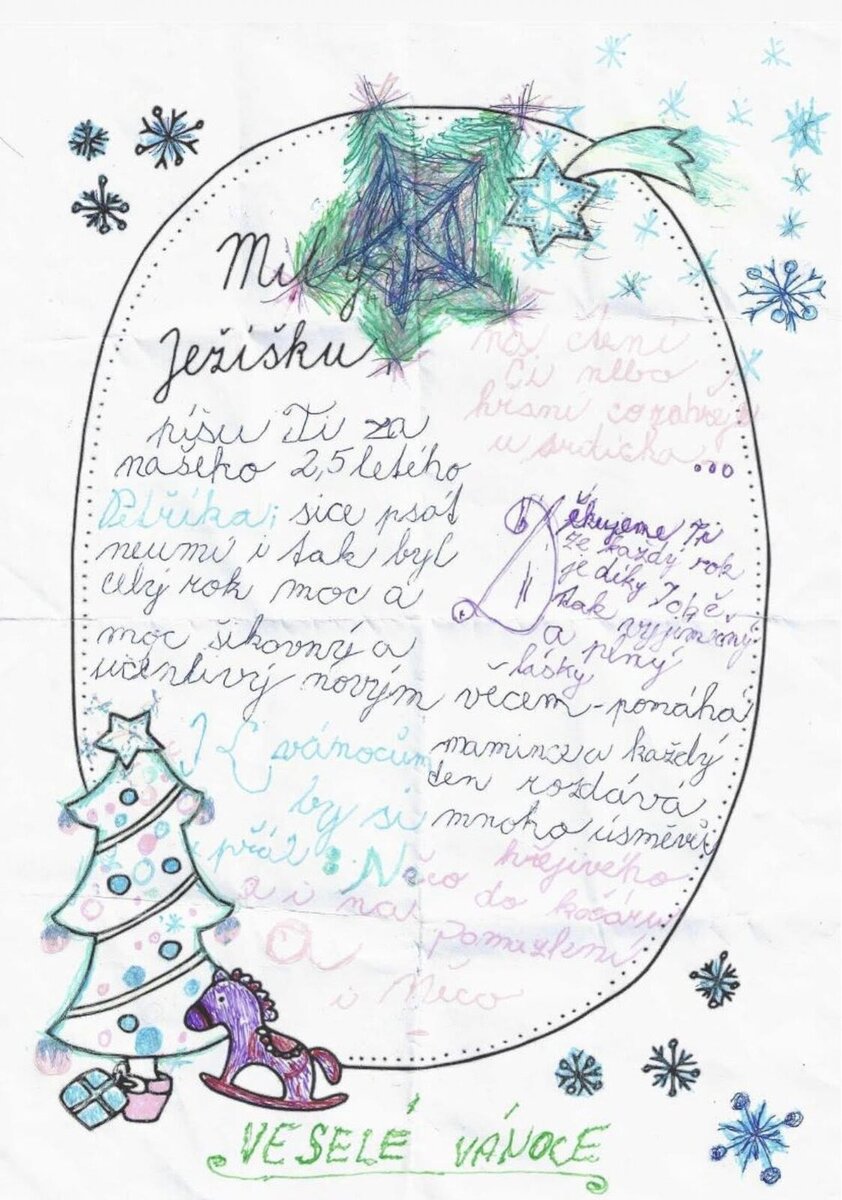 Milý
Ježíšku
píšu Ti za
našeho 2,5 letého
Petříka; sice psát
neumí i tak byl
celý rok moc a
moc šikovný a
učenlivý novým věcem - pomáhá
mamince a každý
den rozdává
mnoho úsměvů
K vánocům
by si
přál: Něco hřejivého
a i na do kočáru
a pomazlení
i Něco
na čtení
Či nebo
hraní co zahřeje
u srdíčka...
Děkujeme Ti
že každý rok
je díky Tobě
tak vyjímečný
a plný
lásky
VESELÉ VÁNOCE